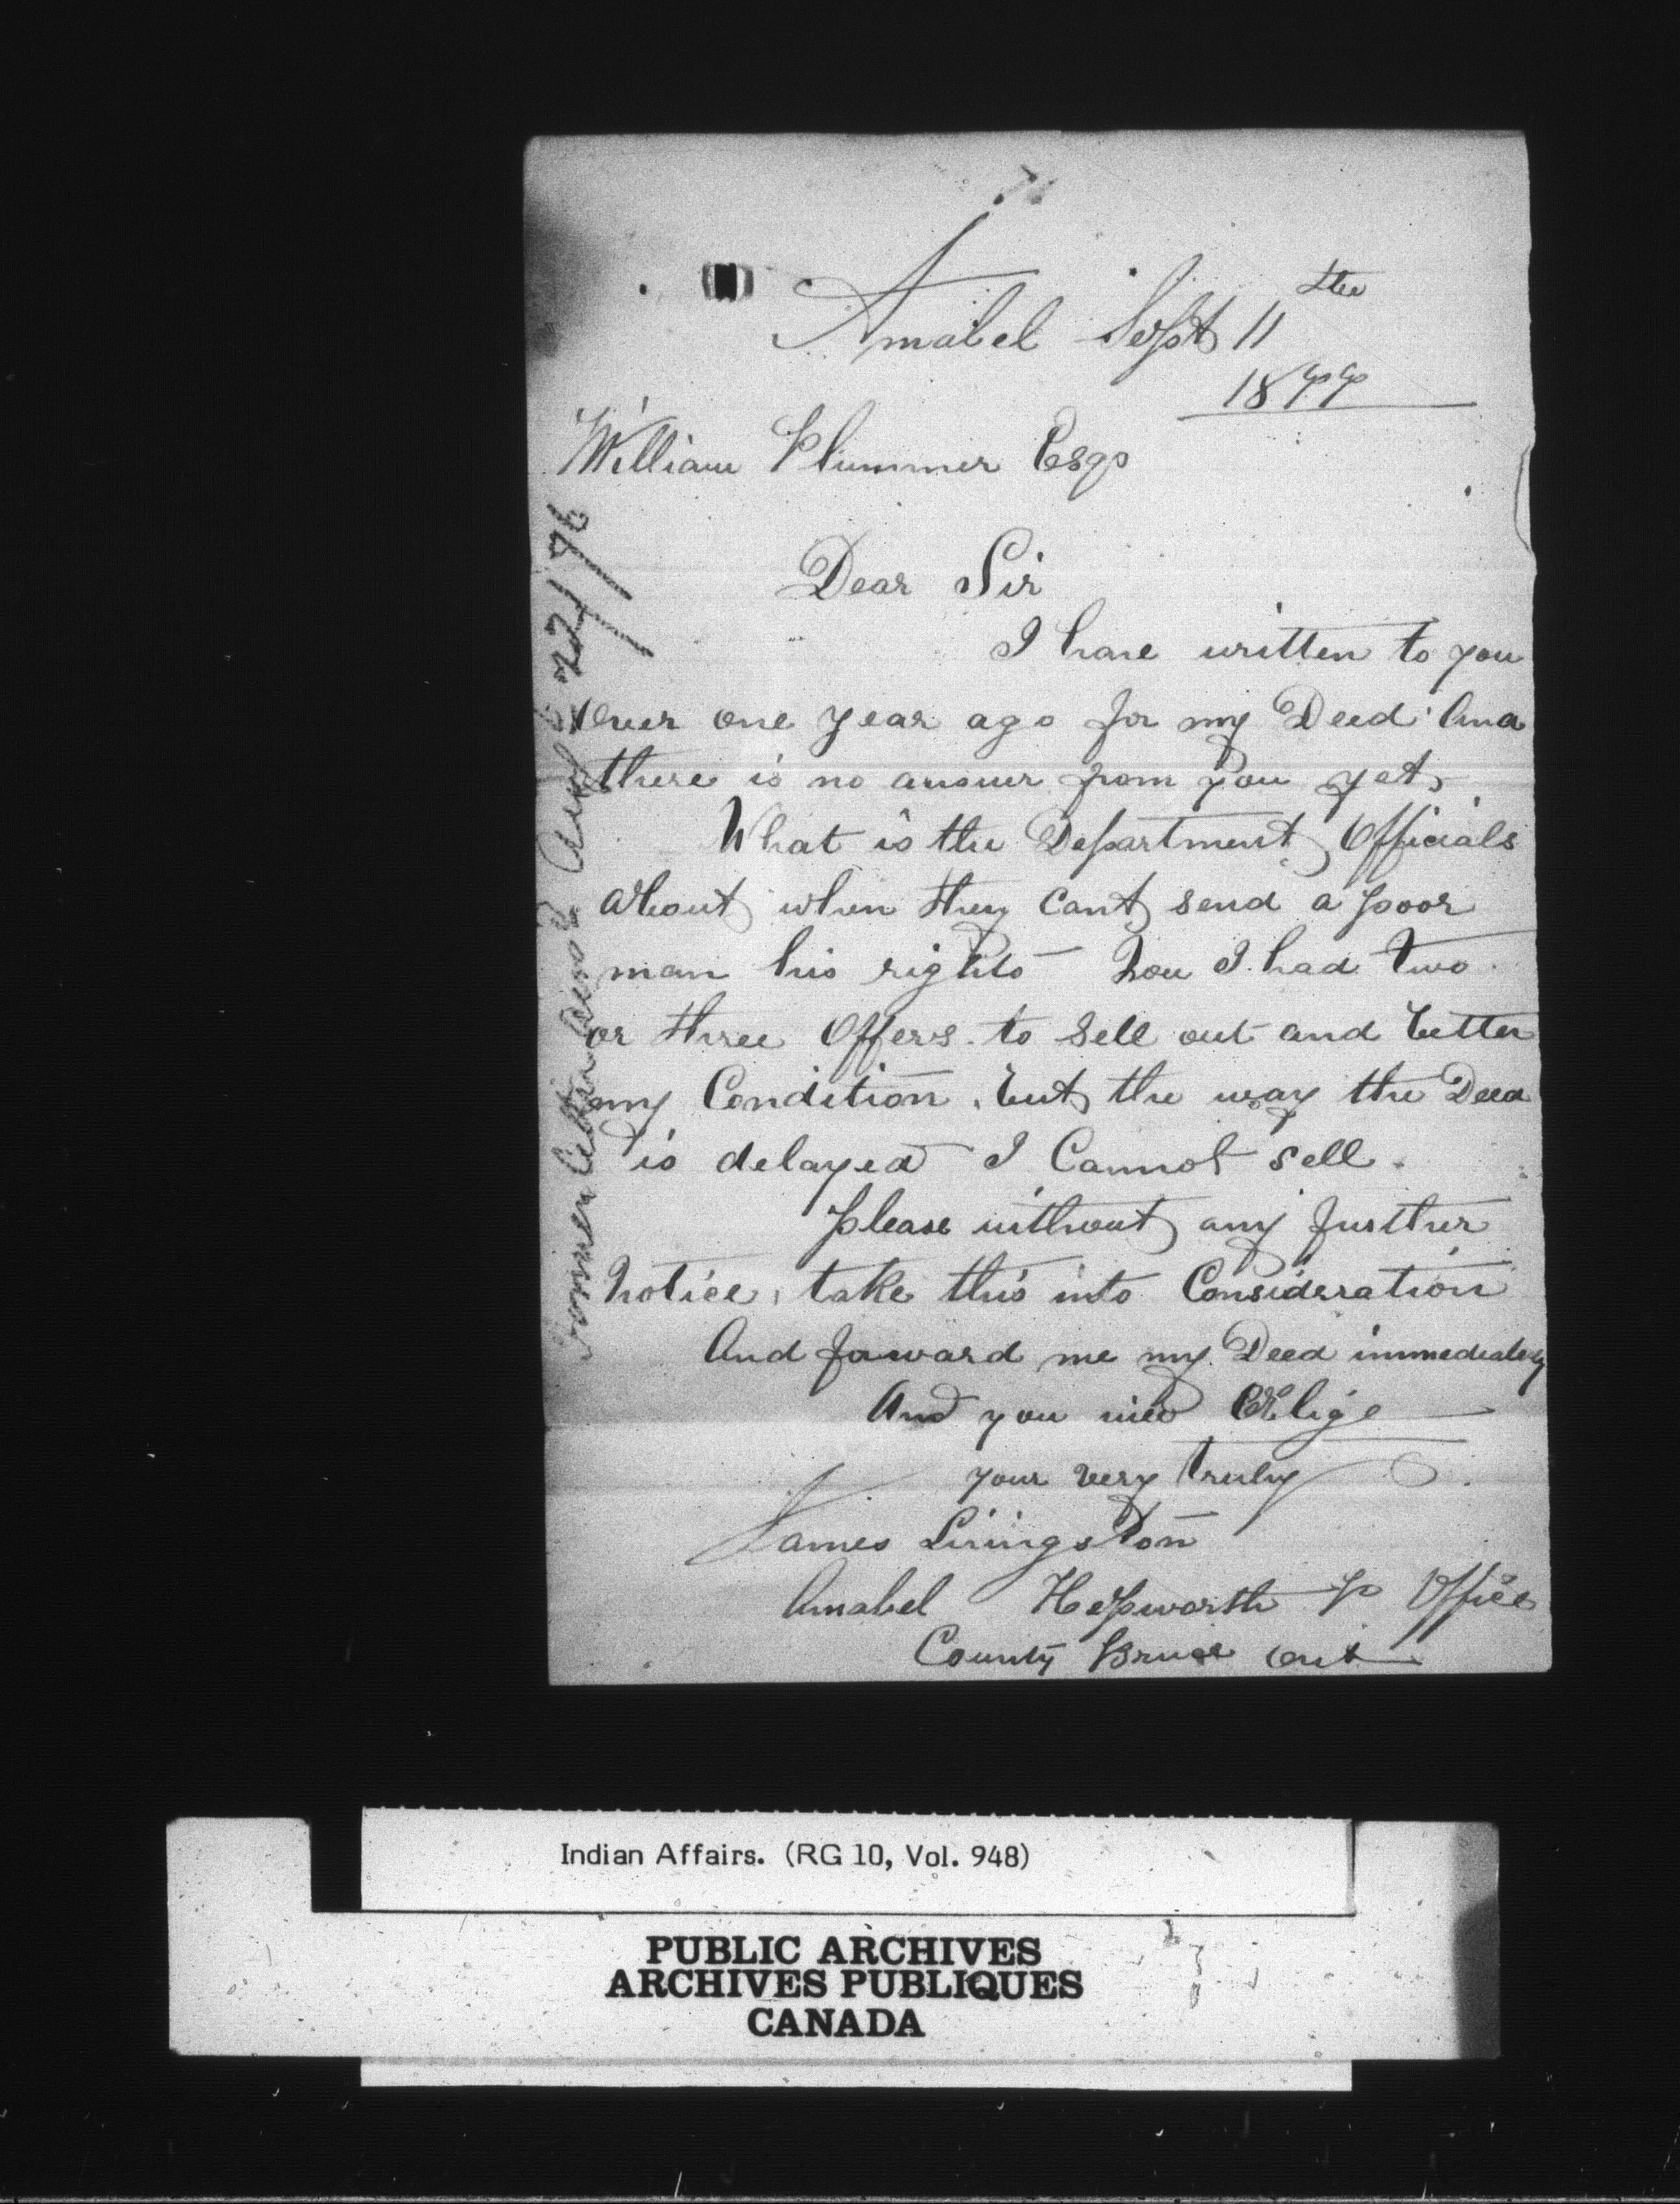 Amabel Sept 11th
1877
William Plummer Esqr
Dear Sir
I have written to you
over one year ago for my Deed And
there is no answer from you yet,
What is the Department Officials
about when they cant send a poor
man his rights now I had two
or three Offers to sell out and better
my Condition, but the way the Deed
is delayed I Cannot sell.
please without any further
notice, take this into Consideration
And forward me my Deed immediately
And you will Oblige
your very truly
James Livingston
Amabel Hepworth P Office
County Bruce Ont
Former letter 22/76
Indian Affairs. (RG 10, Vol. 948)
PUBLIC ARCHIVES
ARCHIVES PUBLIQUES
CANADA